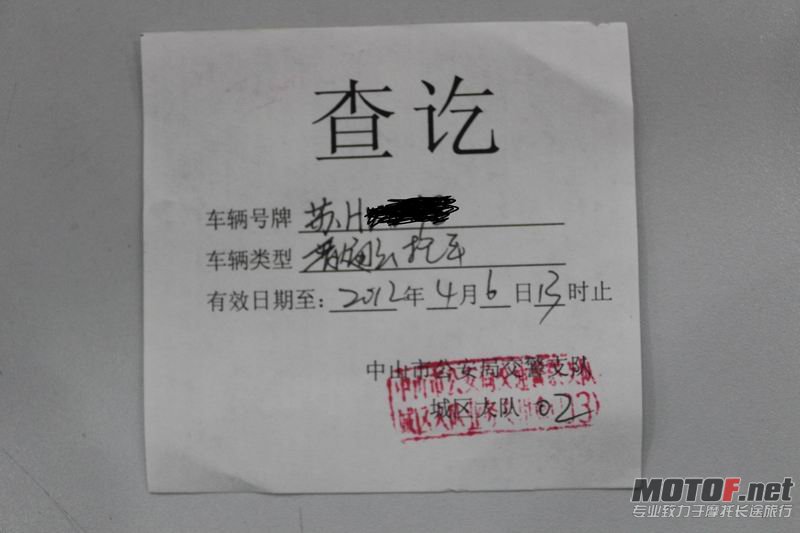 查讫
车辆号牌 苏H
车辆类型 普通二轮摩托车
有效日期至：2012年4月6日13时止
中山市公安局交警支队
城区大队 023
MOTOF.net
专业致力于摩托长途旅行